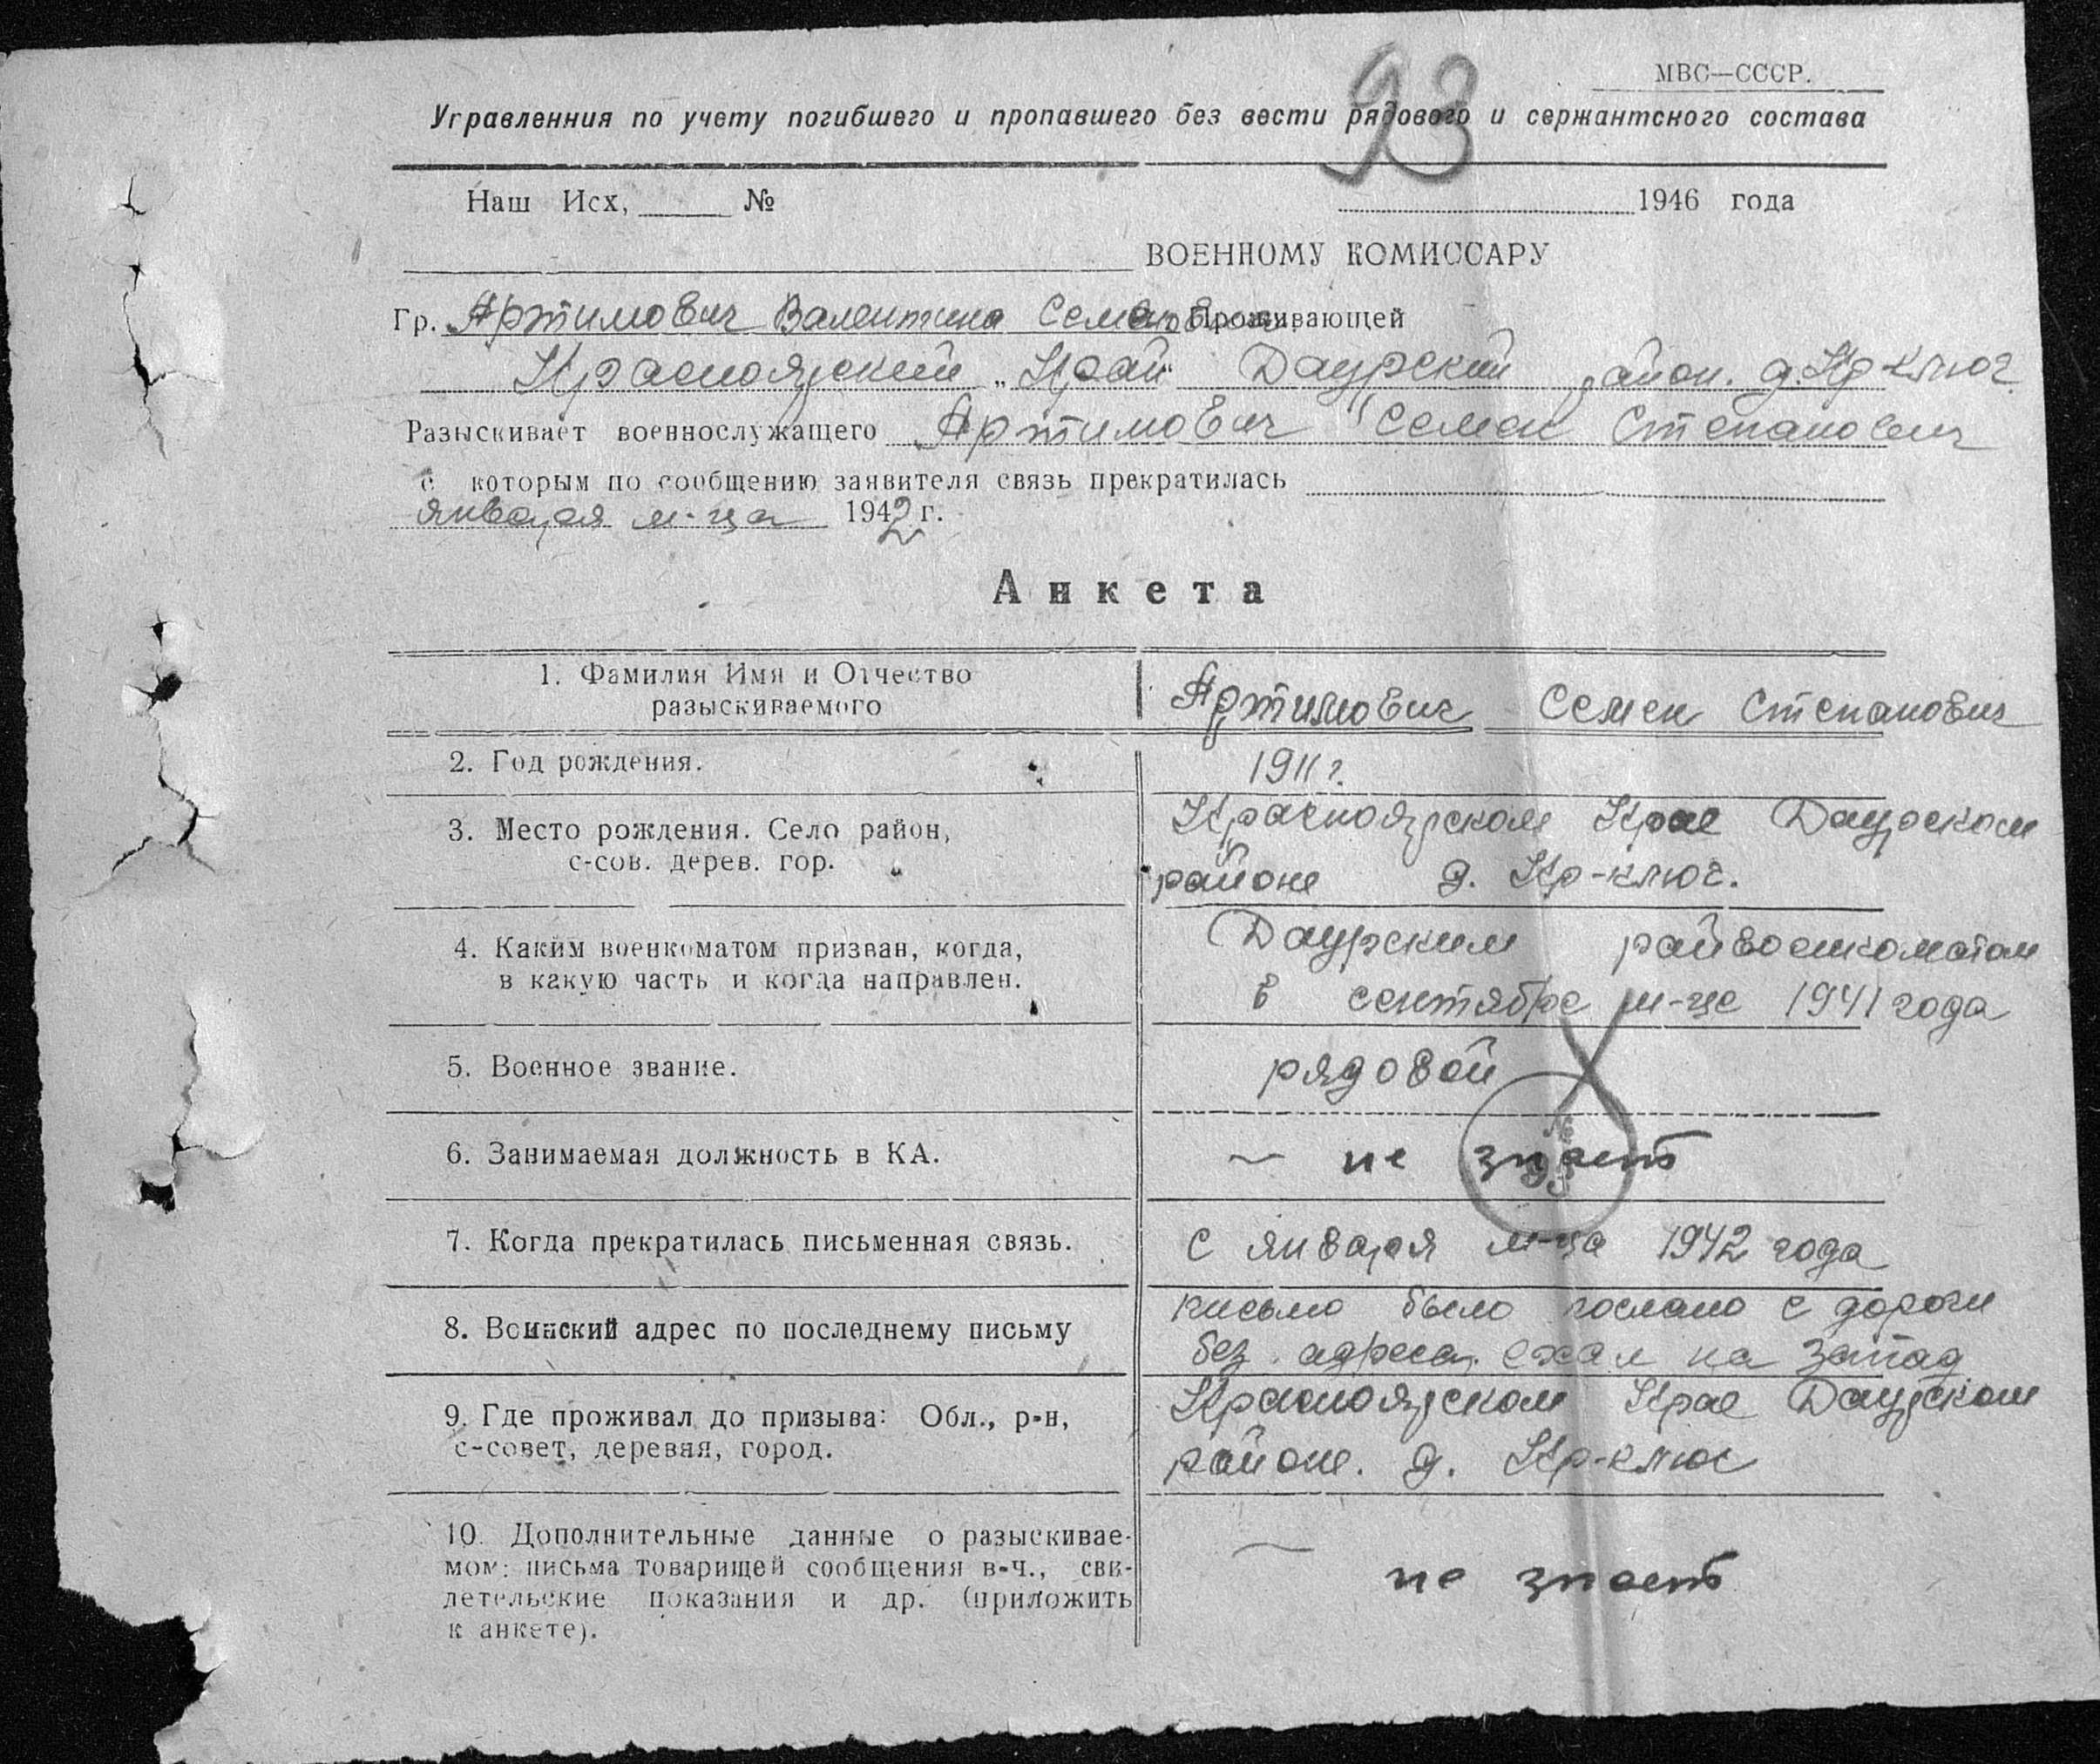 93
МВС—СССР.
Управленния по учету погибшего и пропавшего без вести рядового и сержантского состава
Наш Исх, № 1946 года
ВОЕННОМУ КОМИССАРУ
Гр. Артимович Валентина Семеновна Проживающей
Красноярский „Край“ Даурский район. д. Кр-ключ.
Разыскивает военнослужащего Артимович Семен Степанович
с которым по сообщению заявителя связь прекратилась
января м-ца 1942 г.
Анкета
1. Фамилия Имя и Отчество
разыскиваемого
Артимович Семен Степанович
2. Год рождения.
1911 г.
3. Место рождения. Село район,
с-сов. дерев. гор.
Красноярском Крае Даурском
районе д. Кр-ключ.
4. Каким военкоматом призван, когда,
в какую часть и когда направлен.
Даурским райвоенкоматом
в сентябре м-це 1941 года
5. Военное звание.
рядовой
6. Занимаемая должность в КА.
— не знает
7. Когда прекратилась письменная связь.
с января м-ца 1942 года
8. Воинский адрес по последнему письму
письмо было послано с дороги
без адреса. ехал на запад
9. Где проживал до призыва: Обл., р-н,
с-совет, деревня, город.
Красноярском Крае Даурском
районе. д. Кр-ключ
10. Дополнительные данные о разыскивае-
мом: письма товарищей сообщения в-ч., сви-
детельские показания и др. (приложить
к анкете).
— не знает